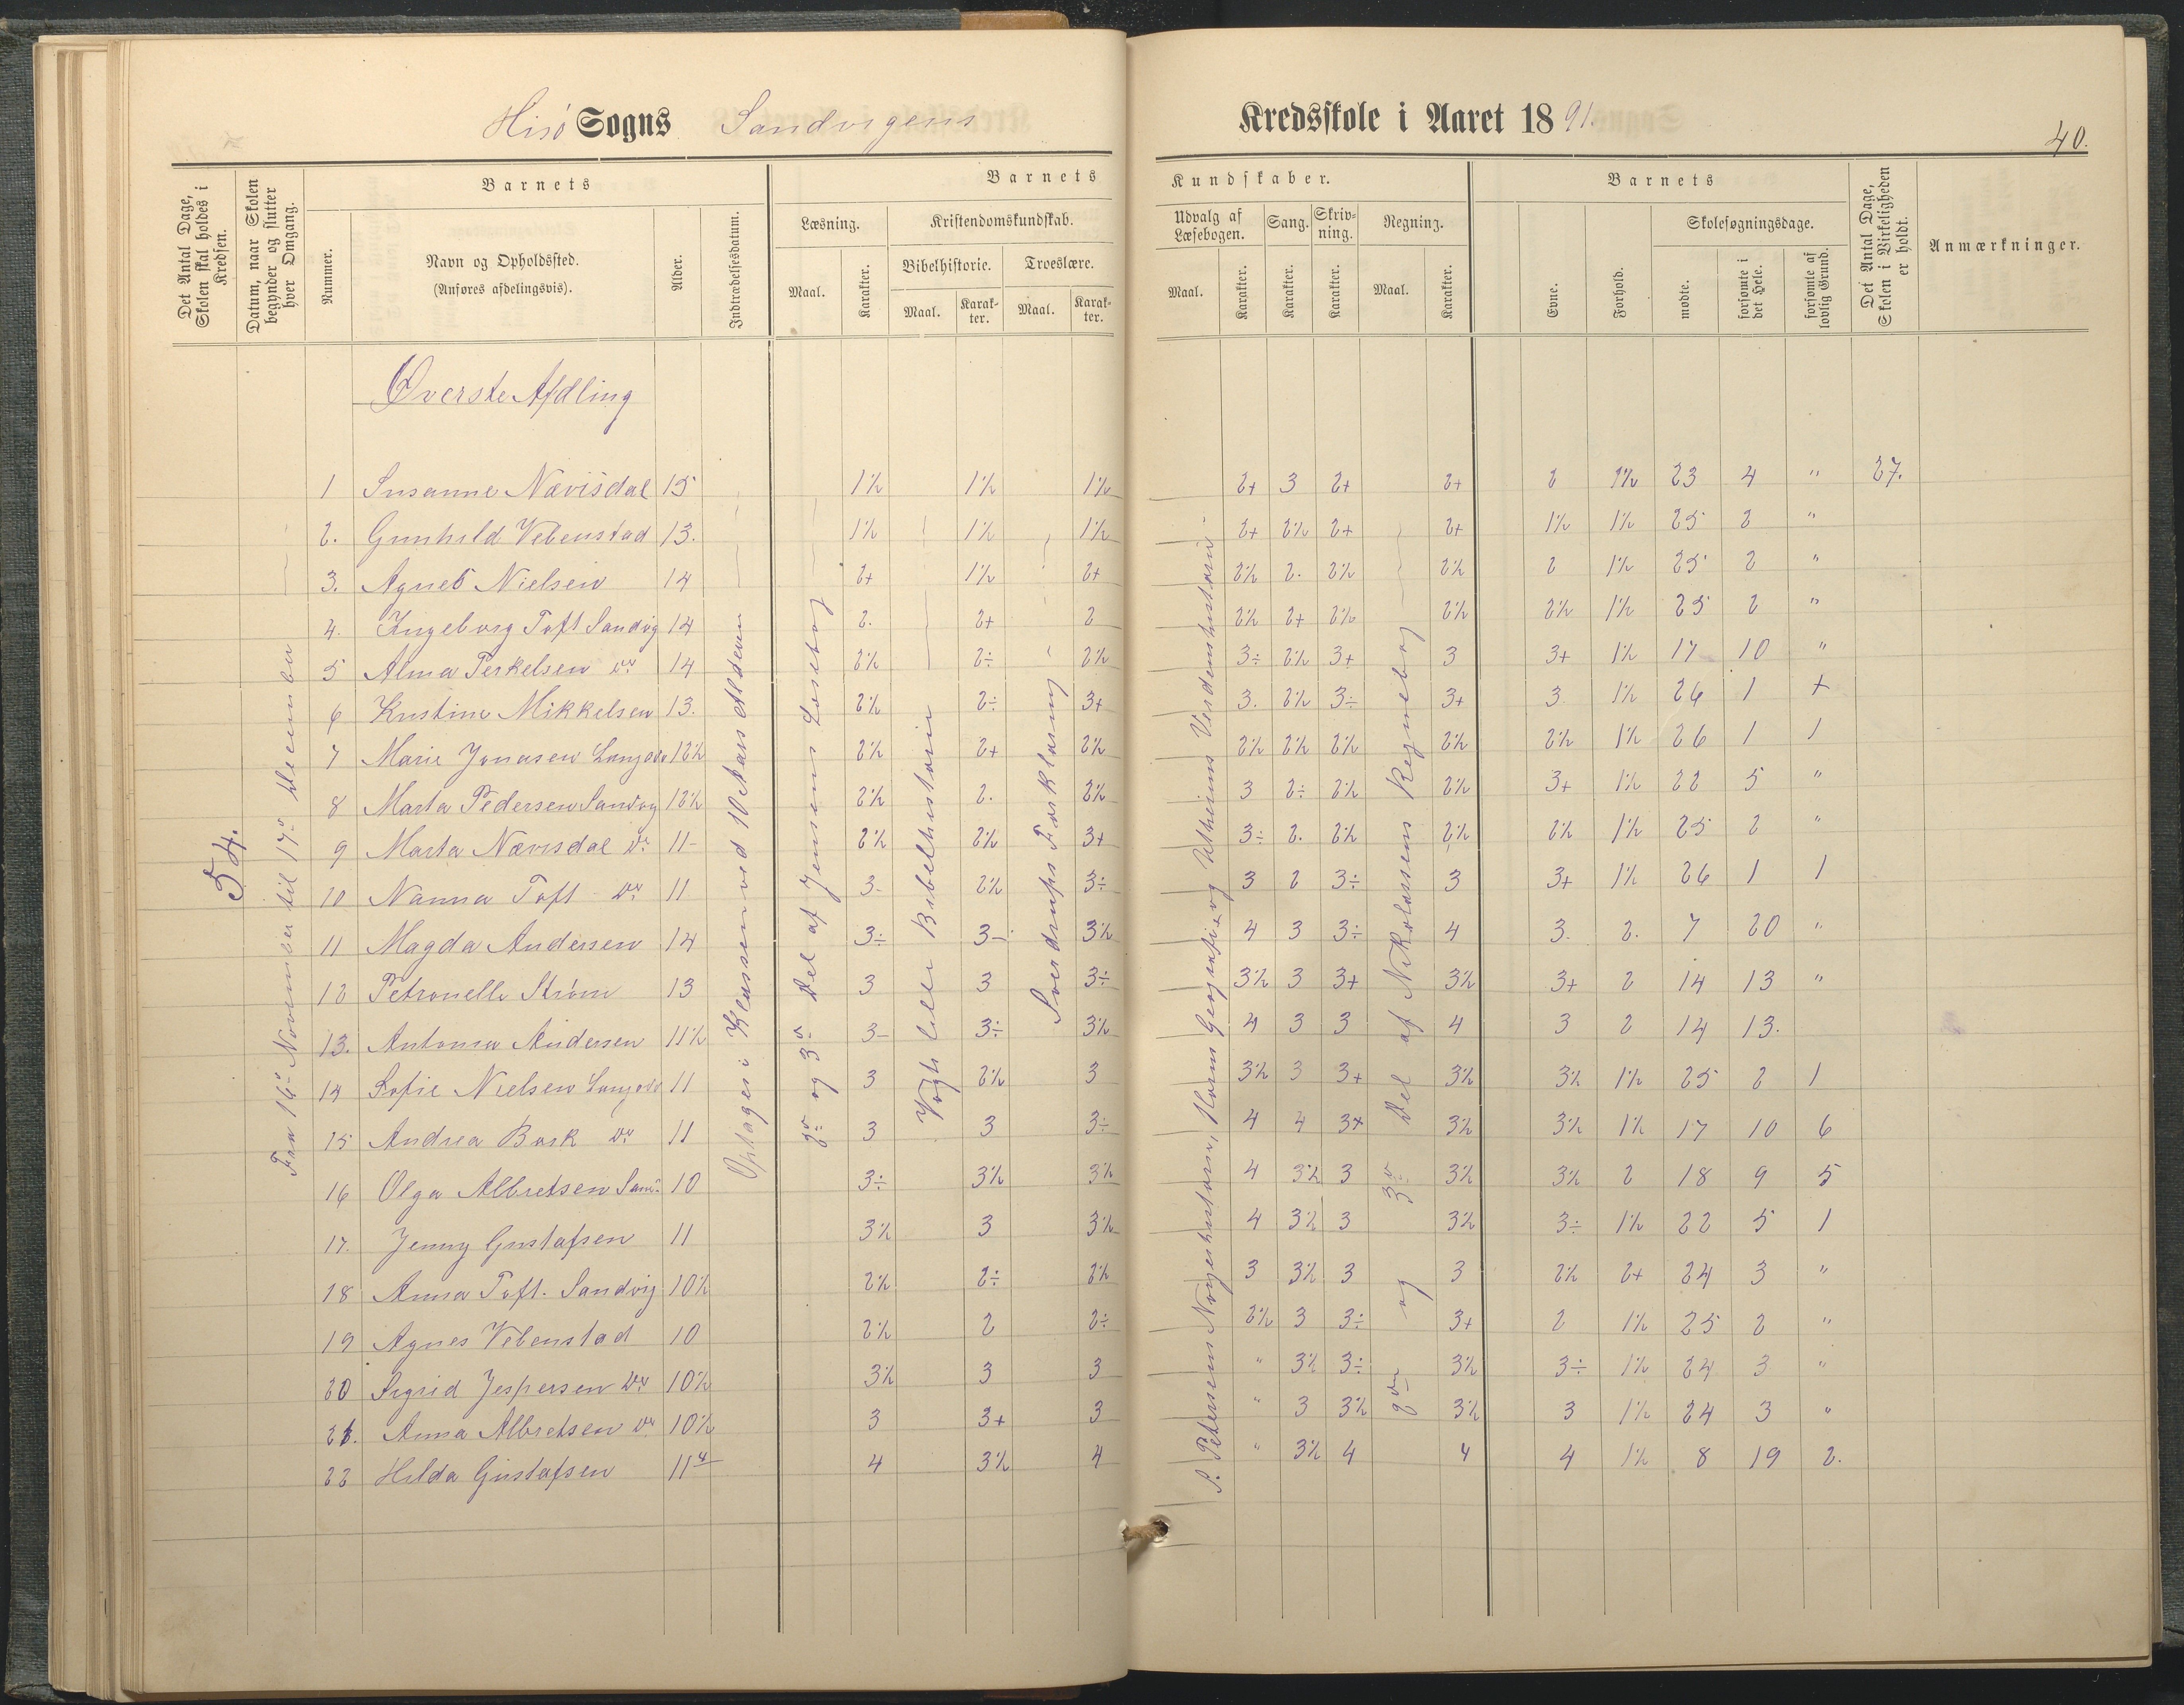 Hisö Sogns Sandvigens Kredsskole i Aaret 1891.
40.
Det Antal Dage, Skolen skal holdes i Kredsen.
Datum, naar Skolen begynder og slutter hver Omgang.
Barnets
Nummer.
Navn og Opholdssted.
(Anføres afdelingsvis).
Alder.
Indtrædelsesdatum.
Barnets Kundskaber.
Læsning.
Maal.
Karakter.
Kristendomskundskab.
Bibelhistorie.
Maal.
Karakter.
Troeslære.
Maal.
Karakter.
Udvalg af Læsebogen.
Maal.
Karakter.
Sang.
Karakter.
Skrivning.
Karakter.
Regning.
Maal.
Karakter.
Barnets
Evne.
Forhold.
Skolesøgningsdage.
mødte.
forsømte i det Hele.
forsømte af lovlig Grund.
Det Antal Dage, Skolen i Virkeligheden er holdt.
Anmærkninger.
Øverste Afdling
54.
Fra 16de November til 17de December
Optages i Klassen ved 10 Aars Alderen
2den og 3die Del af Jensens Læsebog
Vogts lille Bibelhistorie
Sverdrups Forklaring
S. Petersens Norgeshistorie, Horns Geografi og Utheims Verdenshistorie
2den og 3die Del af Nikolaisens Regnebog
1 Susanne Nævisdal 15 1½ 1½ 1½ 2+ 3 2+ 2+ 2 1½ 23 4 " 27.
2. Gunhild Vebenstad 13. 1½ 1½ 1½ 2+ 2½ 2+ 2+ 1½ 1½ 25 2 "
3. Agnes Nielsen 14 2+ 1½ 2+ 2½ 2. 2½ 2½ 2 1½ 25 2 "
4. Ingeborg Toft Sandvig 14 2. 2+ 2 2½ 2+ 2½ 2½ 2½ 1½ 25 2 "
5 Alma Terkelsen do 14 2½ 2÷ 2½ 3÷ 2½ 3+ 3 3+ 1½ 17 10 "
6 Kristine Mikkelsen 13. 2½ 2÷ 3+ 3. 2½ 3÷ 3+ 3 1½ 26 1 +
7 Marie Jonasen Langsæ 12½ 2½ 2+ 2½ 2½ 2½ 2½ 2½ 2½ 1½ 26 1 1
8 Marta Pedersen Sandvig 12½ 2½ 2. 2½ 3 2÷ 2½ 2½ 3+ 1½ 22 5 "
9 Marta Nævisdal do 11- 2½ 2½ 3+ 3÷ 2. 2½ 2½ 2½ 1½ 25 2 "
10 Nanna Toft do 11 3- 2½ 3÷ 3 2 3÷ 3 3+ 1½ 26 1 1
11 Magda Andersen 14 3÷ 3- 3½ 4 3 3÷ 4 3. 2. 7 20 "
12 Petronelle Strøm 13 3 3 3÷ 3½ 3 3+ 3½ 3+ 2 14 13 "
13. Antonia Andersen 11½ 3- 3÷ 3½ 4 3 3 4 3 2 14 13.
14 Sofie Nielsen 11 3 2½ 3 3½ 3 3+ 3½ 3½ 1½ 25 2 1
15 Andrea Bork do 11 3 3 3÷ 4 4 3+ 3½ 3½ 1½ 17 10 6
16 Olga Albretsen Sand. 10 3÷ 3½ 3½ 4 3½ 3 3½ 3½ 2 18 9 5
17. Jenny Gustafsen 11 3½ 3 3½ 4 3½ 3 3½ 3÷ 1½ 22 5 1
18 Anna Toft. Sandvig 10½ 2½ 2÷ 2½ 3 3½ 3 3 2½ 2+ 24 3 "
19 Agnes Vebenstad 10 2½ 2 2÷ 2½ 3 3÷ 3+ 2 1½ 25 2 "
20 Sigrid Jespersen do 10½ 3½ 3 3 " 3½ 3÷ 3½ 3÷ 1½ 24 3 "
21. Anna Albretsen do 10½ 3 3+ 3 " 3 3½ 3½ 3 1½ 24 3 "
22 Hilda Gustafsen 11 4 3½ 4 " 3½ 4 4 4 1½ 8 19 2.